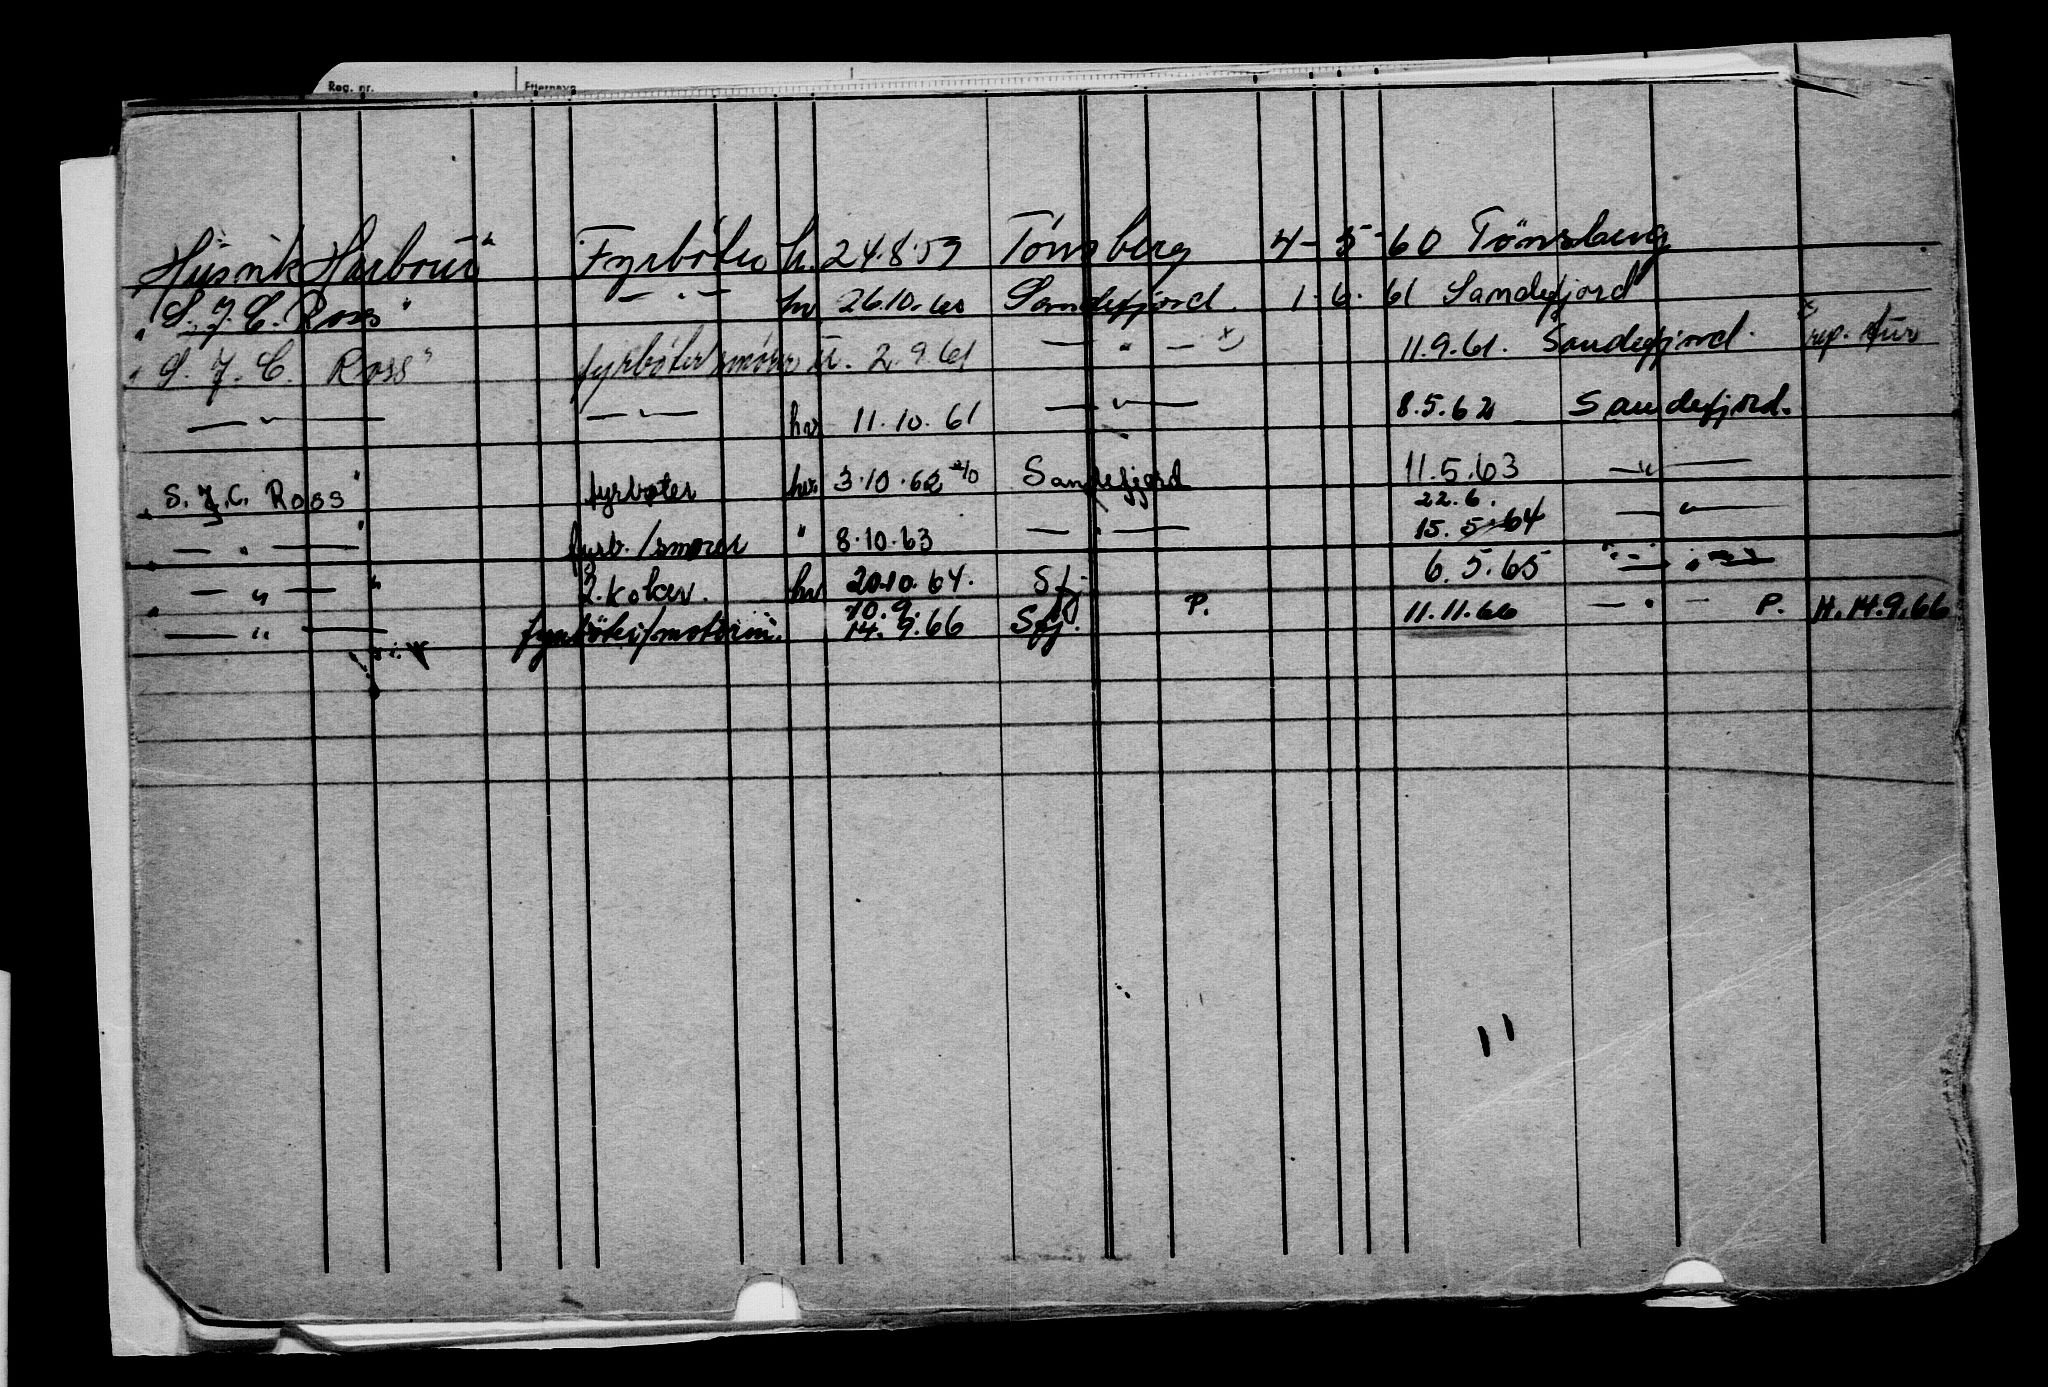 Reg. nr. Etternavn
"Husvik Harbour" Fyrböter h. 24.8.59 Tönsberg 4-5-60 Tönsberg
"S. J. C. Ross" — " — hv 26.10.60 Sandefjord. 1.6.61 Sandefjord
"S. J. C. Ross" fyrbøter/smører u. 2.9.61 — " — x) 11.9.61. Sandefjord. x rep. tur
— " — — " — hv 11.10.61 — " — 8.5.62 Sandefjord.
"S. J. C. Ross" fyrbøter hv. 3.10.62 Sandefjord 11.5.63 — " —
22.6.
— " — " fyrb./smører " 8.10.63 — " — 15.5.64 — " —
— " — " 2. koker. hv 20.10.64. Sfj. 6.5.65 — " —
10.9.
— " — fyrböter/motorm. 14.9.66 Sfj. P. 11.11.66 — " — P. H. 14.9.66